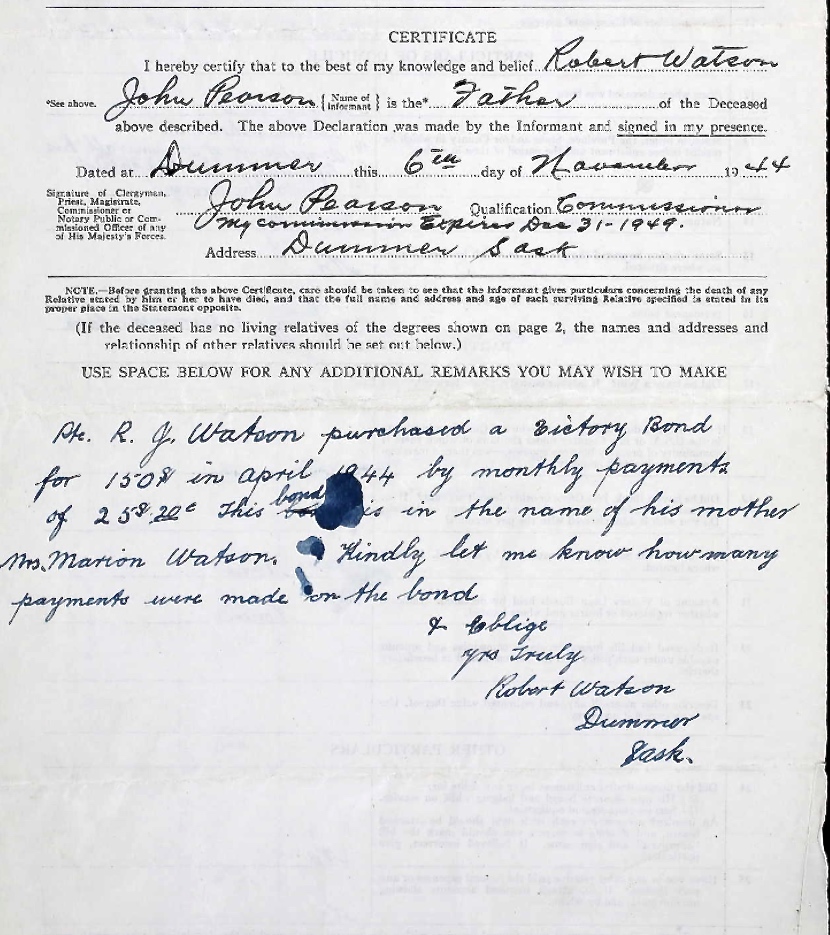 CERTIFICATE
I hereby certify that to the best of my knowledge and belief Robert Watson
*See above. John Pearson {Name of Informant} is the* Father of the Deceased
above described. The above Declaration was made by the Informant and signed in my presence.
Dated at Dummer this 6th day of November 1944
Signature of Clergyman,
Priest, Magistrate,
Commissioner or
Notary Public or Com-
missioned Officer of any
of His Majesty's Forces.
John Pearson Qualification Commissioner
My commission Expires Dec 31-1949.
Address Dummer Sask
NOTE.—Before granting the above Certificate, care should be taken to see that the informant gives particulars concerning the death of any
Relative stated by him or her to have died, and that the full name and address and age of each surviving Relative specified is stated in its
proper place in the Statement opposite.
(If the deceased has no living relatives of the degrees shown on page 2, the names and addresses and
relationship of other relatives should be set out below.)
USE SPACE BELOW FOR ANY ADDITIONAL REMARKS YOU MAY WISH TO MAKE
Pte. R. J. Watson purchased a Victory Bond
for 150$ in April 1944 by monthly payments
of 25$ 20c This bond is in the name of his mother
Mrs. Marion Watson. Kindly let me know how many
payments were made on the bond
& Oblige
yrs Truly
Robert Watson
Dummer
Sask.